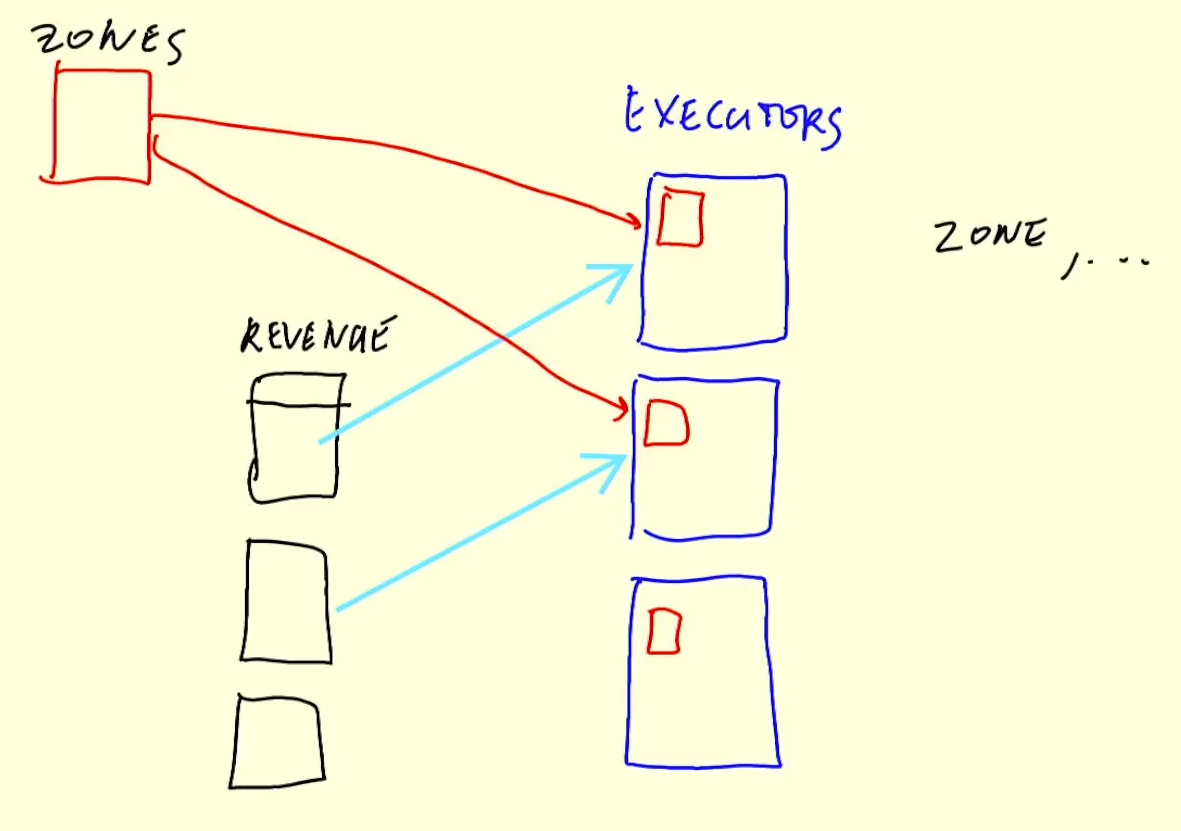 ZONES
EXECUTORS
ZONE, ...
REVENUE